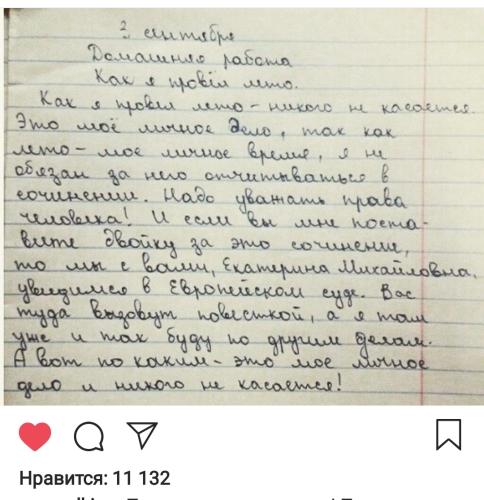 2 сентября
Домашняя работа
Как я провёл лето.
Как я провёл лето - никого не касается.
Это моё личное дело, так как
лето - мое личное время, я не
обязан за него отчитываться в
сочинении. Надо уважать права
человека! И если вы мне поста-
вите двойку за это сочинение,
то мы с вами, Екатерина Михайловна,
увидимся в Европейском суде. Вас
туда вызовут повесткой, а я там
уже и так буду по другим делам.
А вот по каким - это мое личное
дело и никого не касается!
Нравится: 11 132